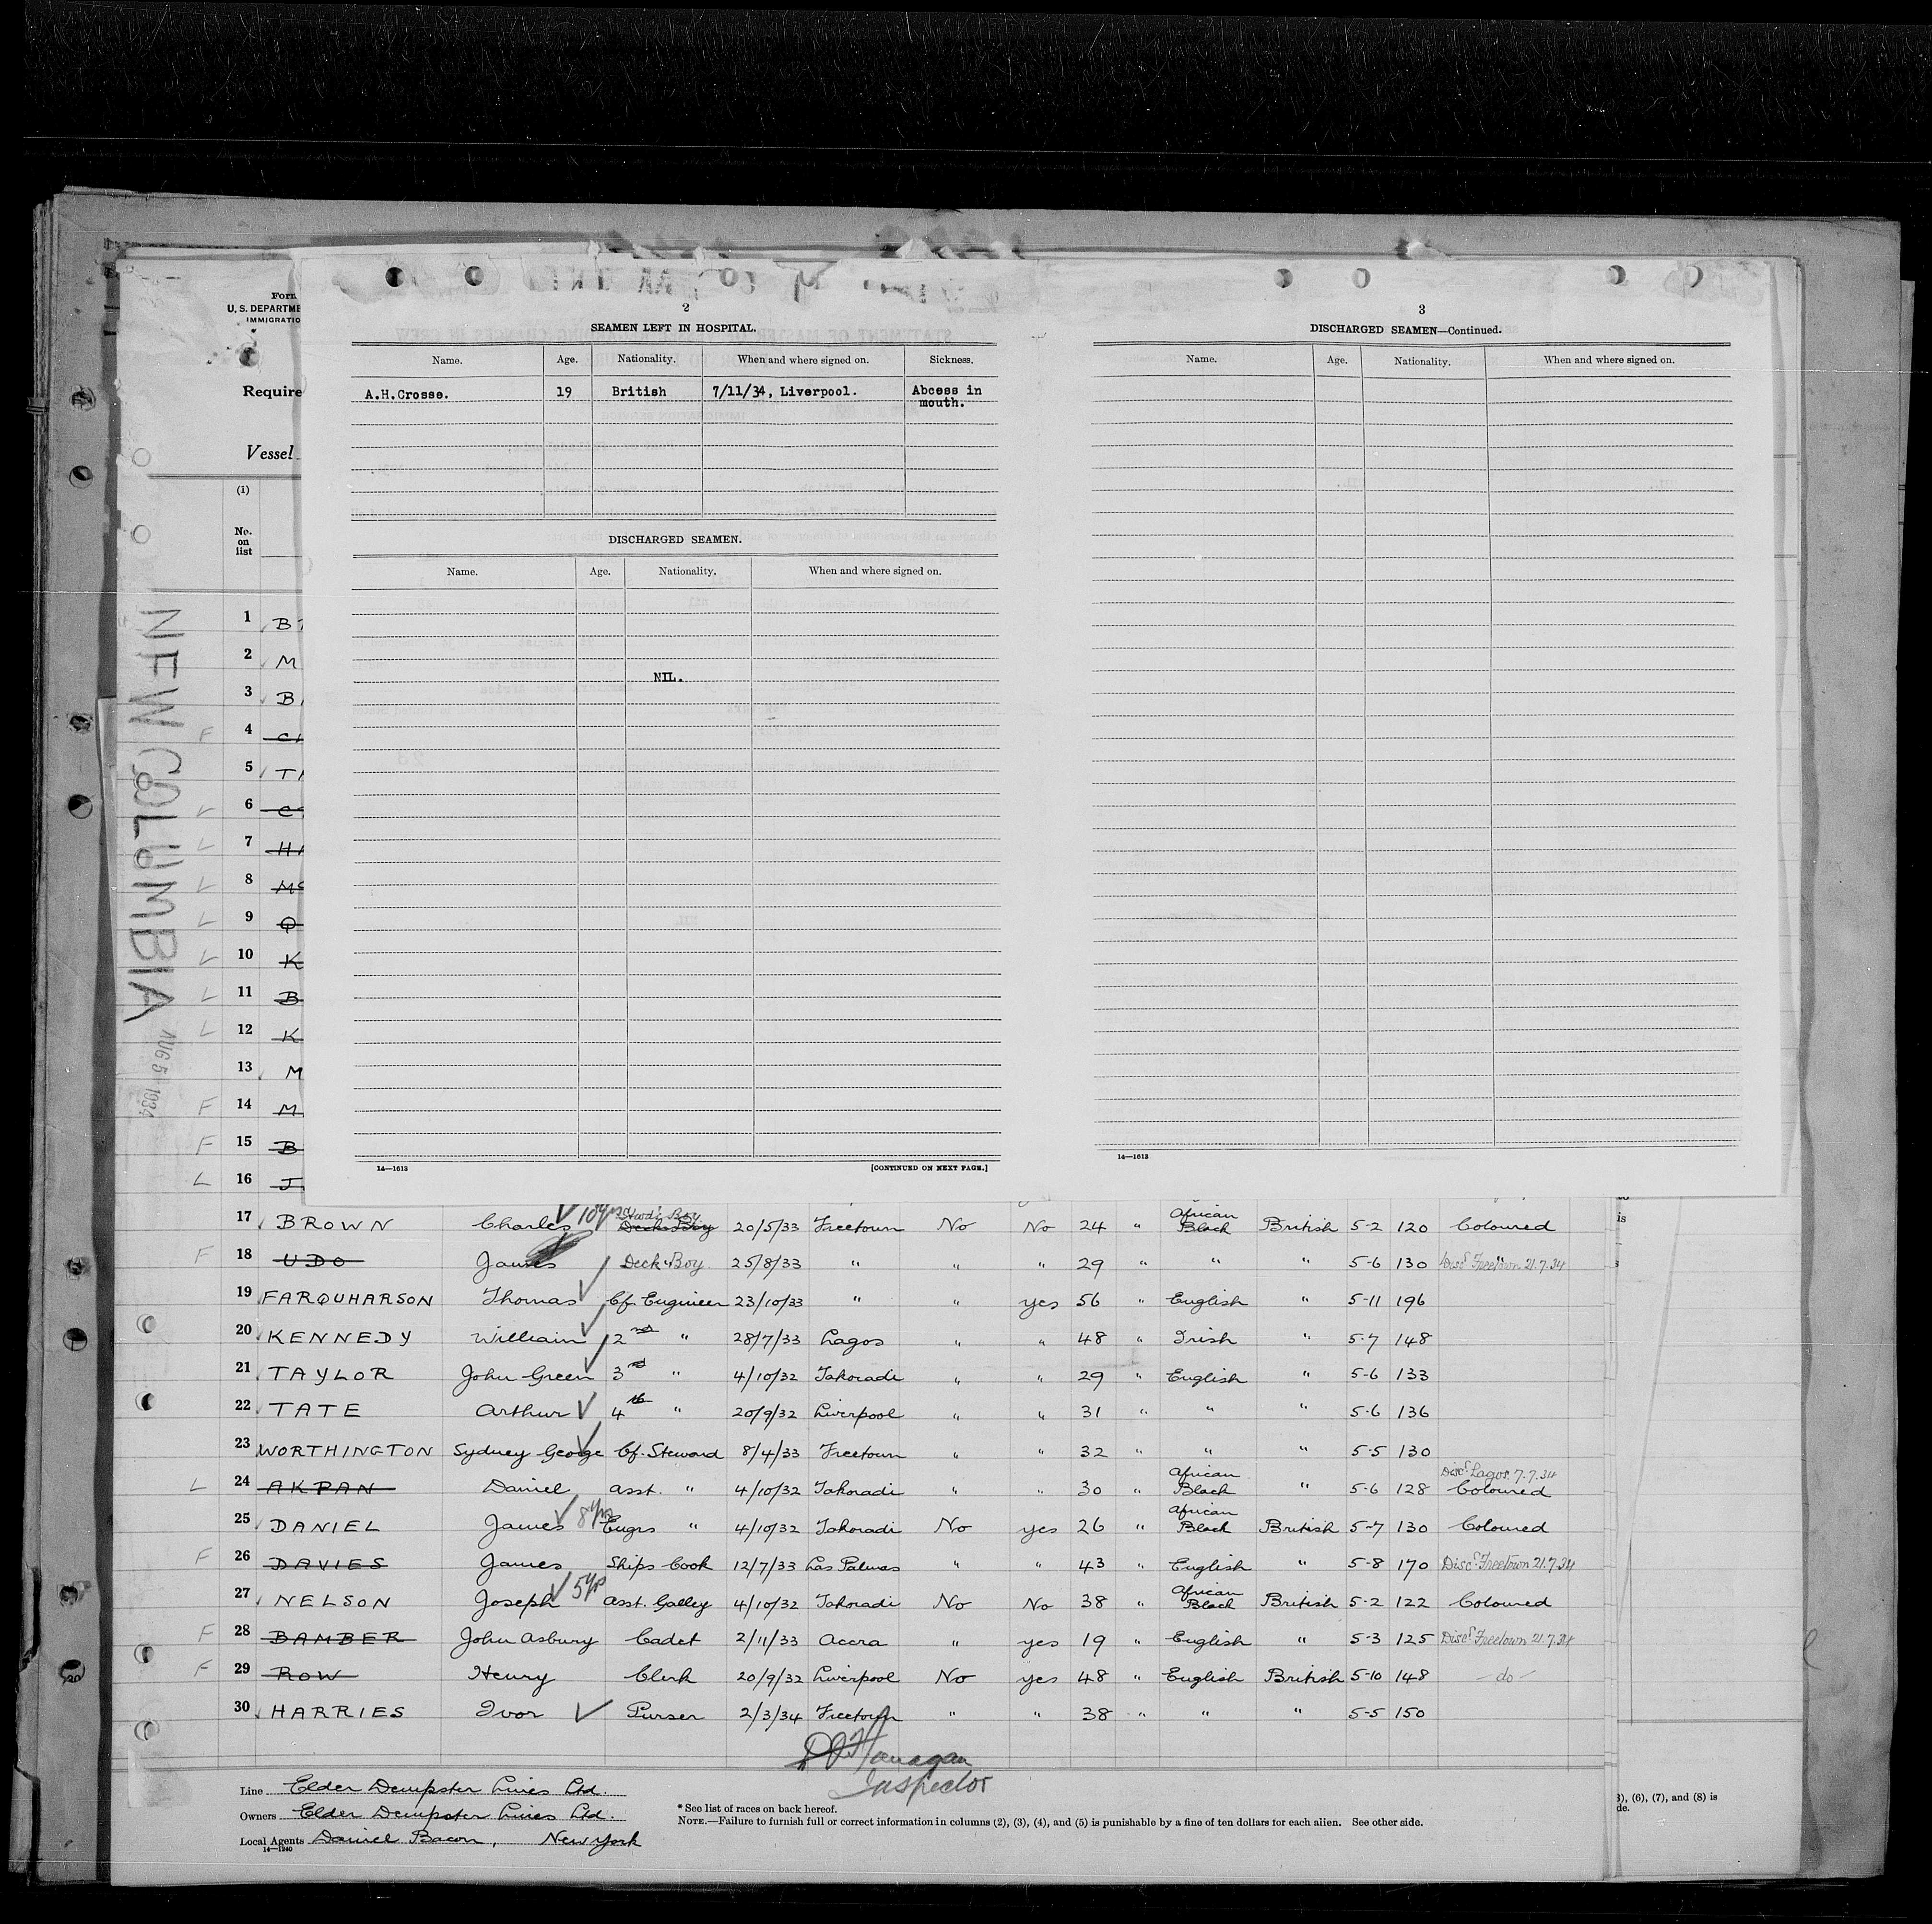 Form
U. S. DEPARTME
IMMIGRATIO
Require
Vessel
(1)
No.
on
list
NEW COLUMBIA
AUG 5 1934
2
SEAMEN LEFT IN HOSPITAL.
Name. Age. Nationality. When and where signed on. Sickness.
A.H.Crosse. 19 British 7/11/34, Liverpool. Abcess in
mouth.
DISCHARGED SEAMEN.
Name. Age. Nationality. When and where signed on.
NIL.
14—1613 [CONTINUED ON NEXT PAGE.]
3
DISCHARGED SEAMEN—Continued.
Name. Age. Nationality. When and where signed on.
14—1613
1 B
2 M
3 B
F 4 C
5 T
6 C
L 7 H
L 8 Mc
L 9 Q
L 10 K
L 11 B
L 12 K
13 M
F 14 M
F 15 B
L 16 J
17 BROWN Charles 10yrs Stwd's Boy Deck Boy 20/5/33 Freetown No No 24 African Black British 5-2 120 Coloured
F 18 UDO James Deck Boy 25/8/33 " " " 29 " " " 5-6 130 Disc. Freetown 21.7.34
19 FARQUHARSON Thomas Cf. Engineer 23/10/33 " " yes 56 " English " 5-11 196
20 KENNEDY William 2nd " 28/7/33 Lagos " " 48 " Irish " 5-7 148
21 TAYLOR John Green 3rd " 4/10/32 Takoradi " " 29 " English " 5-6 133
22 TATE Arthur 4th " 20/9/32 Liverpool " " 31 " " " 5-6 136
23 WORTHINGTON Sydney George Cf. Steward 8/4/33 Freetown " " 32 " " " 5-5 130
L 24 AKPAN Daniel Asst. " 4/10/32 Takoradi " " 30 " African Black " 5-6 128 Disc. Lagos. 7.7.34 Coloured
25 DANIEL James 8yrs Engrs " 4/10/32 Takoradi No yes 26 " African Black British 5-7 130 Coloured
F 26 DAVIES James Ships Cook 12/7/33 Las Palmas " " 43 " English " 5-8 170 Disc. Freetown 21.7.34
27 NELSON Joseph 5yrs Asst. Galley 4/10/32 Takoradi No No 38 " African Black British 5-2 122 Coloured
F 28 BAMBER John Asbury Cadet 2/11/33 Accra " yes 19 " English " 5-3 125 Disc. Freetown 21.7.34
F 29 ROW Henry Clerk 20/9/32 Liverpool No yes 48 " English British 5-10 148 - do -
30 HARRIES Ivor Purser 2/3/34 Freetown " " 38 " " " 5-5 150
Flanagan
Inspector
Line Elder Dempster Lines Ltd.
Owners Elder Dempster Lines Ltd.
Local Agents Daniel Bacon, New York
14—1240
* See list of races on back hereof.
NOTE.—Failure to furnish full or correct information in columns (2), (3), (4), and (5) is punishable by a fine of ten dollars for each alien. See other side.
is
, (6), (7), and (8) is
de.